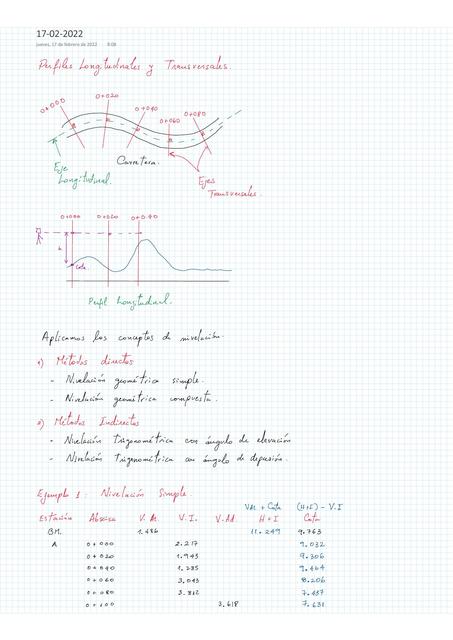 17-02-2022
jueves, 17 de febrero de 2022 8:08
Perfiles Longitudinales y Transversales.
0+000 0+020 0+040 0+060 0+080
Eje Longitudinal.
Carretera.
Ejes Transversales.
0+000 0+020 0+040
h
Cota
Perfil Longitudinal.
Aplicamos los conceptos de nivelación
1) Métodos directos
- Nivelación geométrica simple.
- Nivelación geométrica compuesta.
2) Métodos Indirectos
- Nivelación trigonométrica con ángulo de elevación
- Nivelación trigonométrica con ángulo de depresión.
Ejemplo 1: Nivelación Simple.
VAt + Cota (H+I) - V.I
Estación Abscisa V. At. V.I. V.Ad. H+I Cota
BM. 1.486 11.249 9.763
A 0+000 2.217 9.032
0+020 1.943 9.306
0+040 1.785 9.464
0+060 3.043 8.206
0+080 3.812 7.437
0+100 3.618 7.631